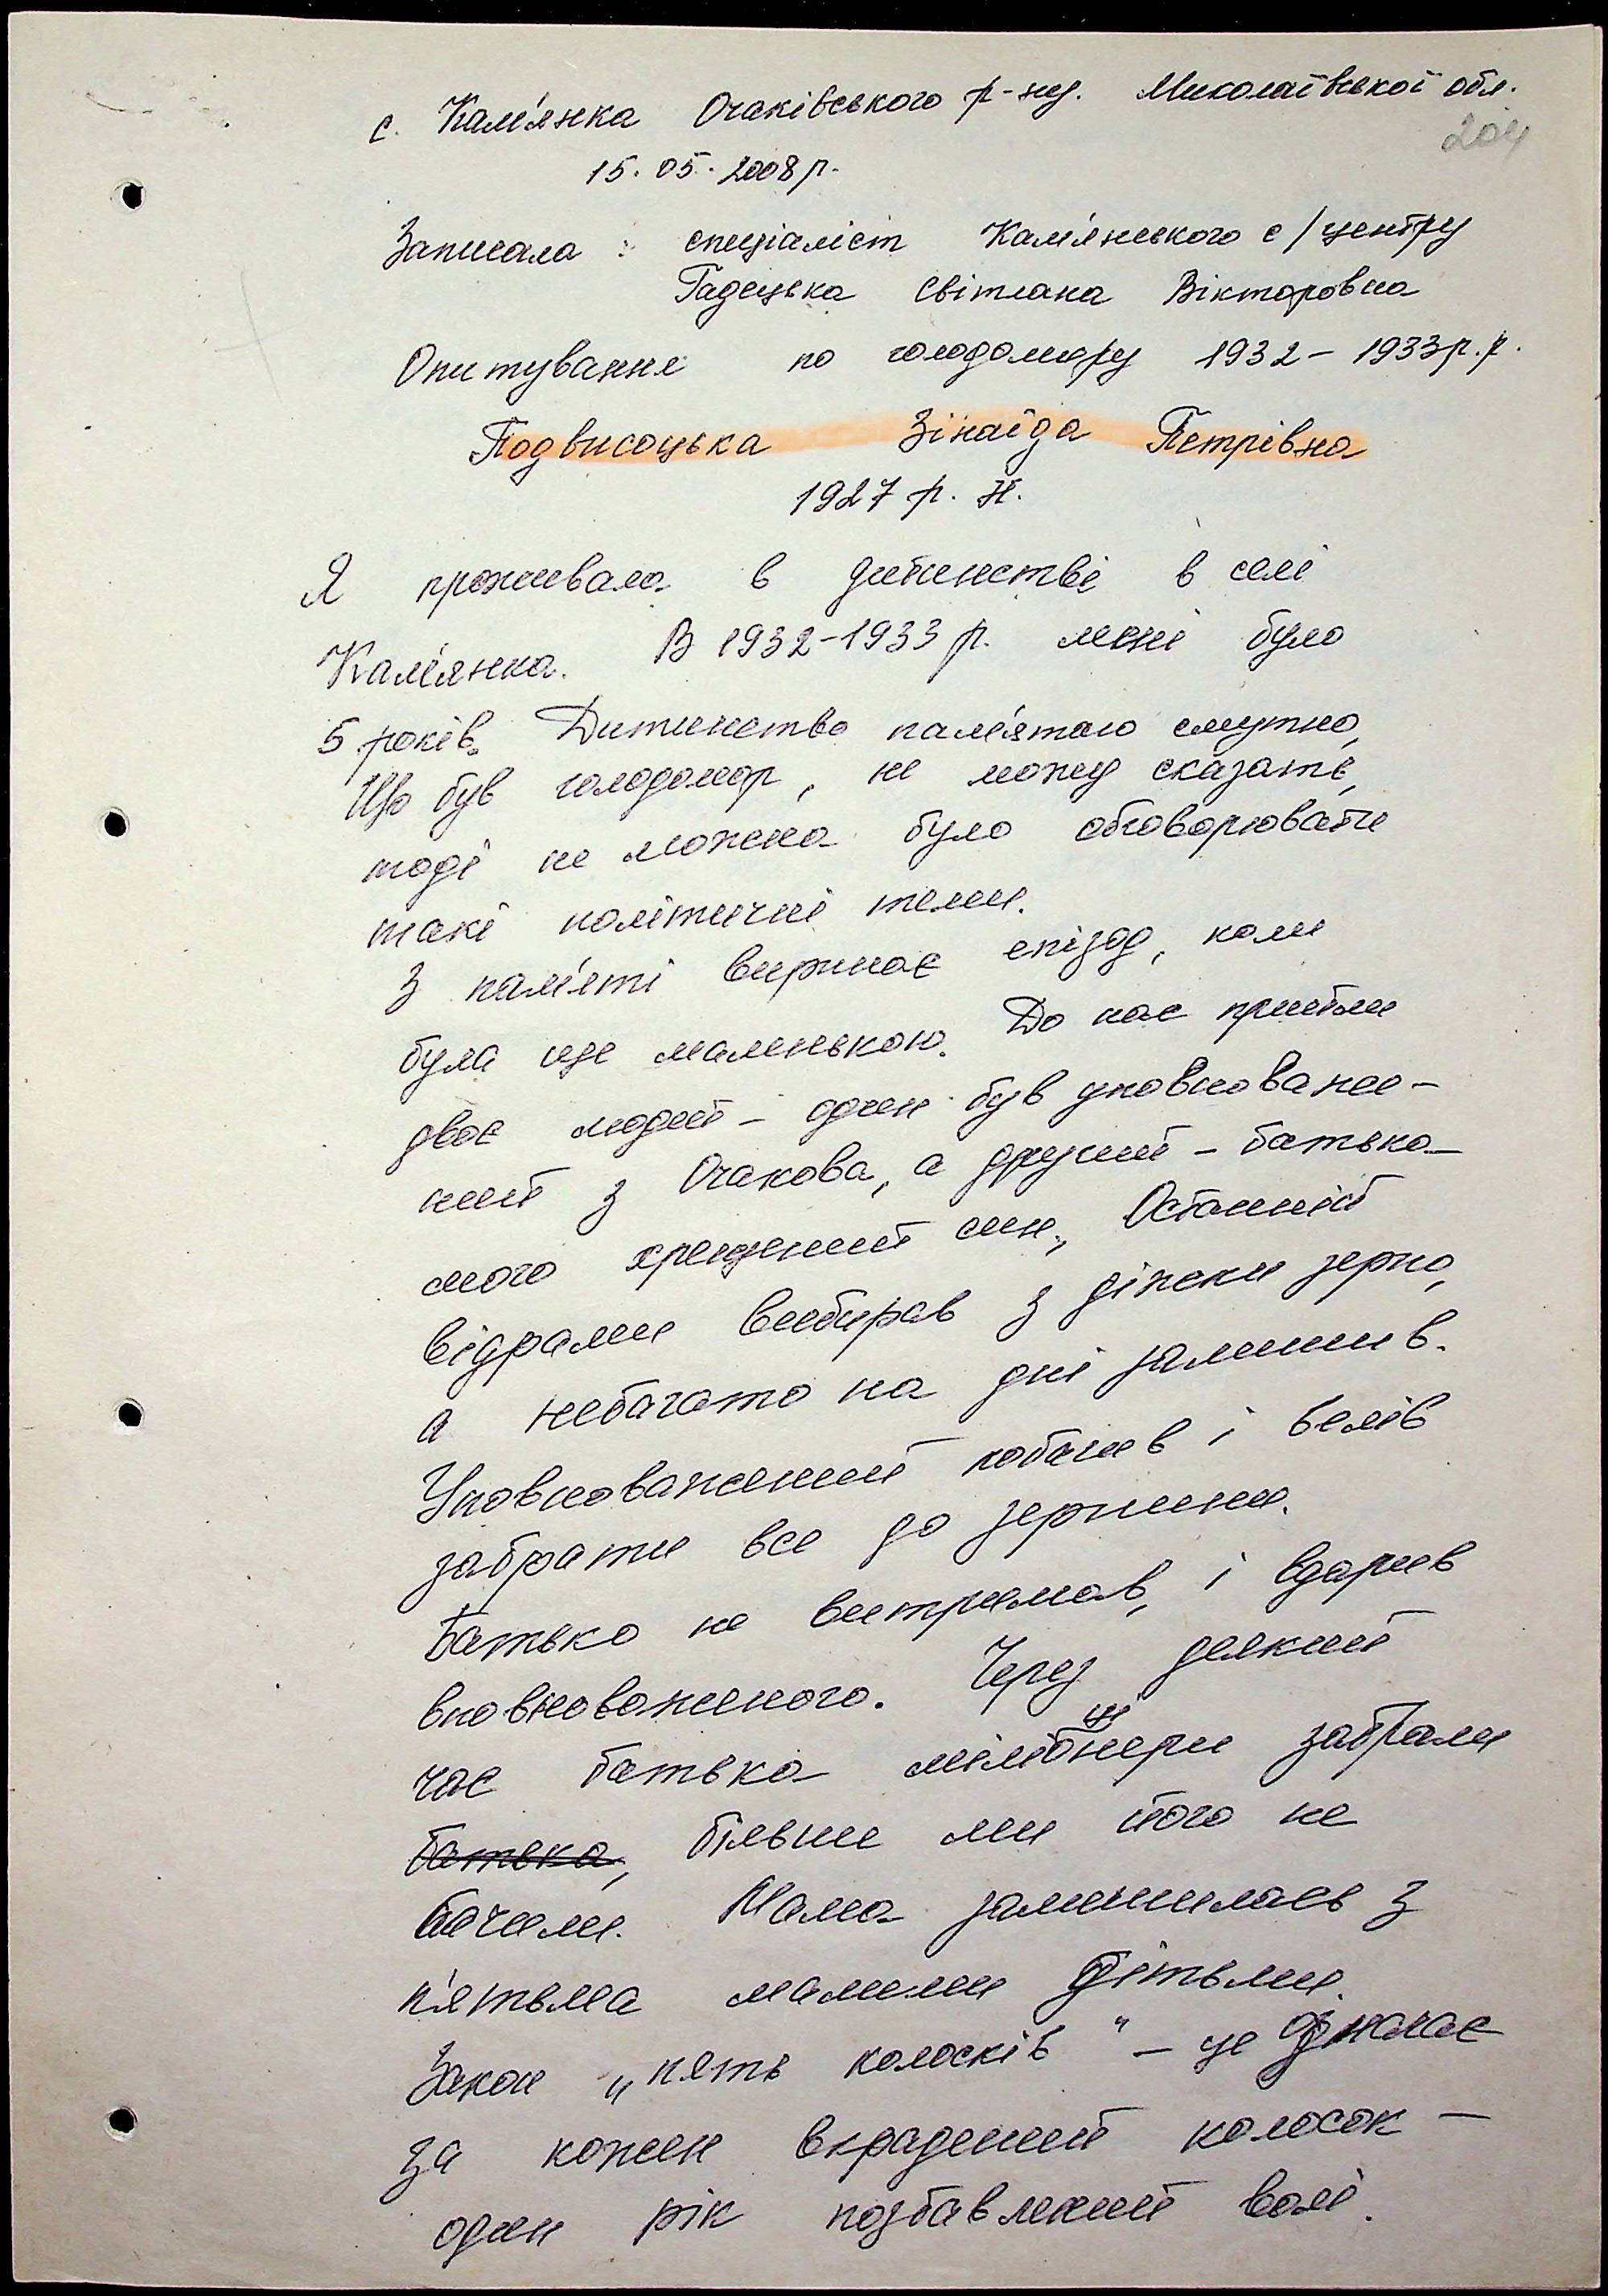 с. Кам'янка Очаківського р-ну. Миколаївської обл.
204
15.05.2008р.
Записала: спеціаліст Кам'янського с/центру
Гадецька Світлана Вікторовна
Опитування по голодомору 1932-1933р.р.
Подвисоцька Зінаїда Петрівна
1927 р. н.
Я проживала в дитинстві в селі
Кам'янка. В 1932-1933 р. мені було
5 років. Дитинство пам'ятаю смутно,
Що був голодомор, не можу сказать,
тоді не можна було обговорювати
такі політичні теми.
З пам'яті виринає епізод, коли
була ще маленькою. До нас прийшли
двоє людей - один був уповноваже-
ний з Очакова, а другий - батька
мого хрещений син. Останній
відрами вибирав з діжки зерно,
а небагато на дні залишив.
Уповноважений побачив і велів
забрати все до зернини.
Батько не витримав, і вдарив
вповноваженого. Через деякий
час батька міліціонери забрали
батька, більше ми його не
бачили. Мама залишилась з
п'ятьма малими дітьми.
Закон „п'ять колосків" - це означає
за кожен вкрадений колосок -
один рік позбавлений волі.